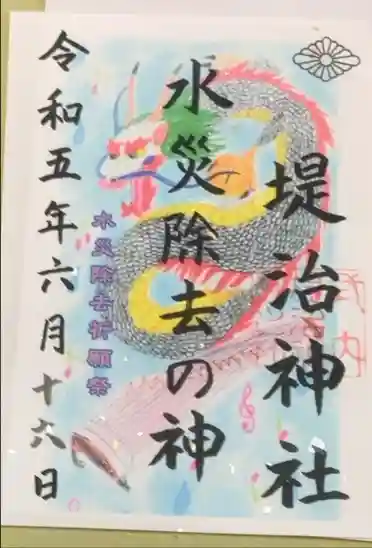 堤治神社
水災除去の神
水災除去祈願祭
令和五年六月十六日